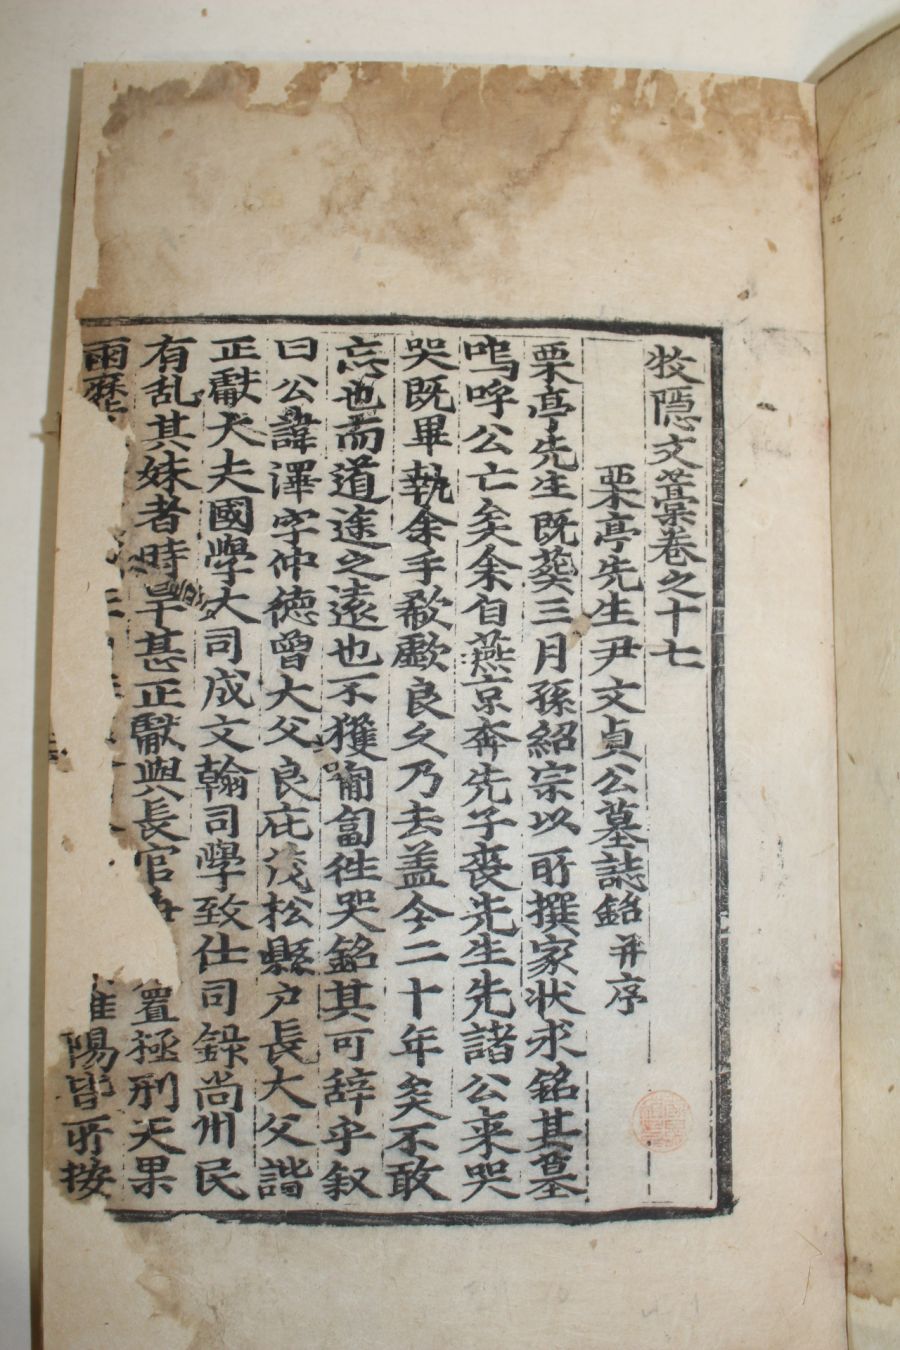 牧隱文藁卷之十七
栗亭先生尹文貞公墓誌銘 并序
栗亭先生既葬三月孫紹宗以所撰家状求銘其墓
嗚呼公亡矣余自燕京奔先子喪先生先諸公来哭
哭既畢執余手欷歔良久乃去盖今二十年矣不敢
忘也而道途之遠也不獲匍匐徃哭銘其可辞乎叙
曰公諱澤字仲德曾大父良庇茂松縣户長大父諧
正獻大夫國學大司成文翰司學致仕司錄尚州民
有乱其妹者時旱甚正獻與長官 置極刑天果
雨歷 陽皆所按